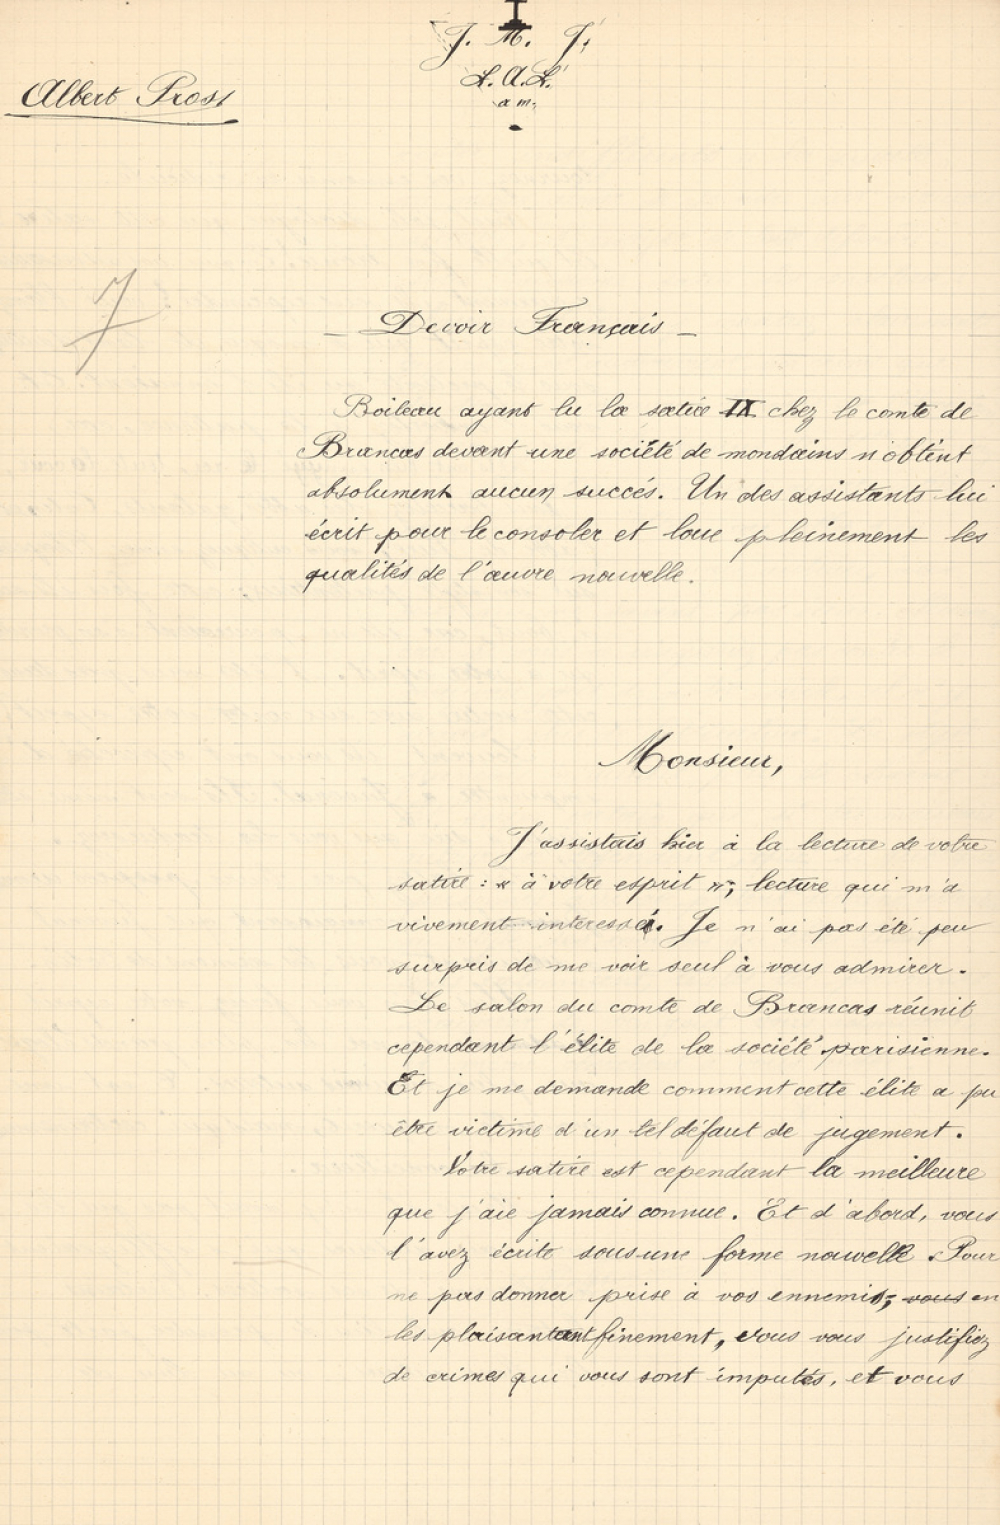 J. M. J.
L. A. L.
a m.
Albert Prost
7
— Devoir Français —
Boileau ayant lu la satire IX chez le comte de
Brancas devant une société de mondains n'obtint
absolument aucun succés. Un des assistants lui
écrit pour le consoler et loue pleinement les
qualités de l'œuvre nouvelle.
Monsieur,
J'assistais hier à la lecture de votre
satire : « à votre esprit », lecture qui m'a
vivement interessé. Je n'ai pas été peu
surpris de me voir seul à vous admirer.
Le salon du comte de Brancas réunit
cependant l'élite de la société parisienne.
Et je me demande comment cette élite a pu
être victime d'un tel défaut de jugement.
Votre satire est cependant la meilleure
que j'aie jamais connue. Et d'abord, vous
l'avez écrite sous une forme nouvelle. Pour
ne pas donner prise à vos ennemis, vous en
les plaisantant finement, vous vous justifiez
de crimes qui vous sont imputés, et vous